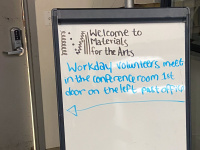 Welcome to
Materials
for the Arts
Workday volunteers meet
in the conference room 1st
door on the left past office